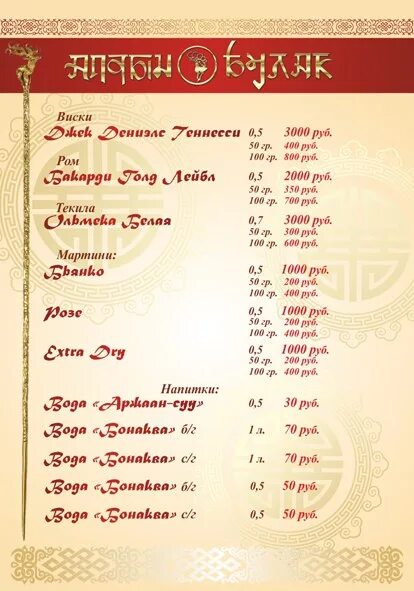 АЛТЫН БУЛАК
Виски
Джек Дениэлс Теннесси 0,5 3000 руб.
50 гр. 400 руб.
100 гр. 800 руб.
Ром
Бакарди Голд Лейбл 0,5 2000 руб.
50 гр. 350 руб.
100 гр. 700 руб.
Текила
Ольмека Белая 0,7 3000 руб.
50 гр. 300 руб.
100 гр. 600 руб.
Мартини:
Бьянко 0,5 1000 руб.
50 гр. 200 руб.
100 гр. 400 руб.
Розе 0,5 1000 руб.
50 гр. 200 руб.
100 гр. 400 руб.
Extra Dry 0,5 1000 руб.
50 гр. 200 руб.
100 гр. 400 руб.
Напитки:
Вода «Аржаан-суу» 0,5 30 руб.
Вода «Бонаква» б/г 1 л. 70 руб.
Вода «Бонаква» с/г 1 л. 70 руб.
Вода «Бонаква» б/г 0,5 50 руб.
Вода «Бонаква» с/г 0,5 50 руб.